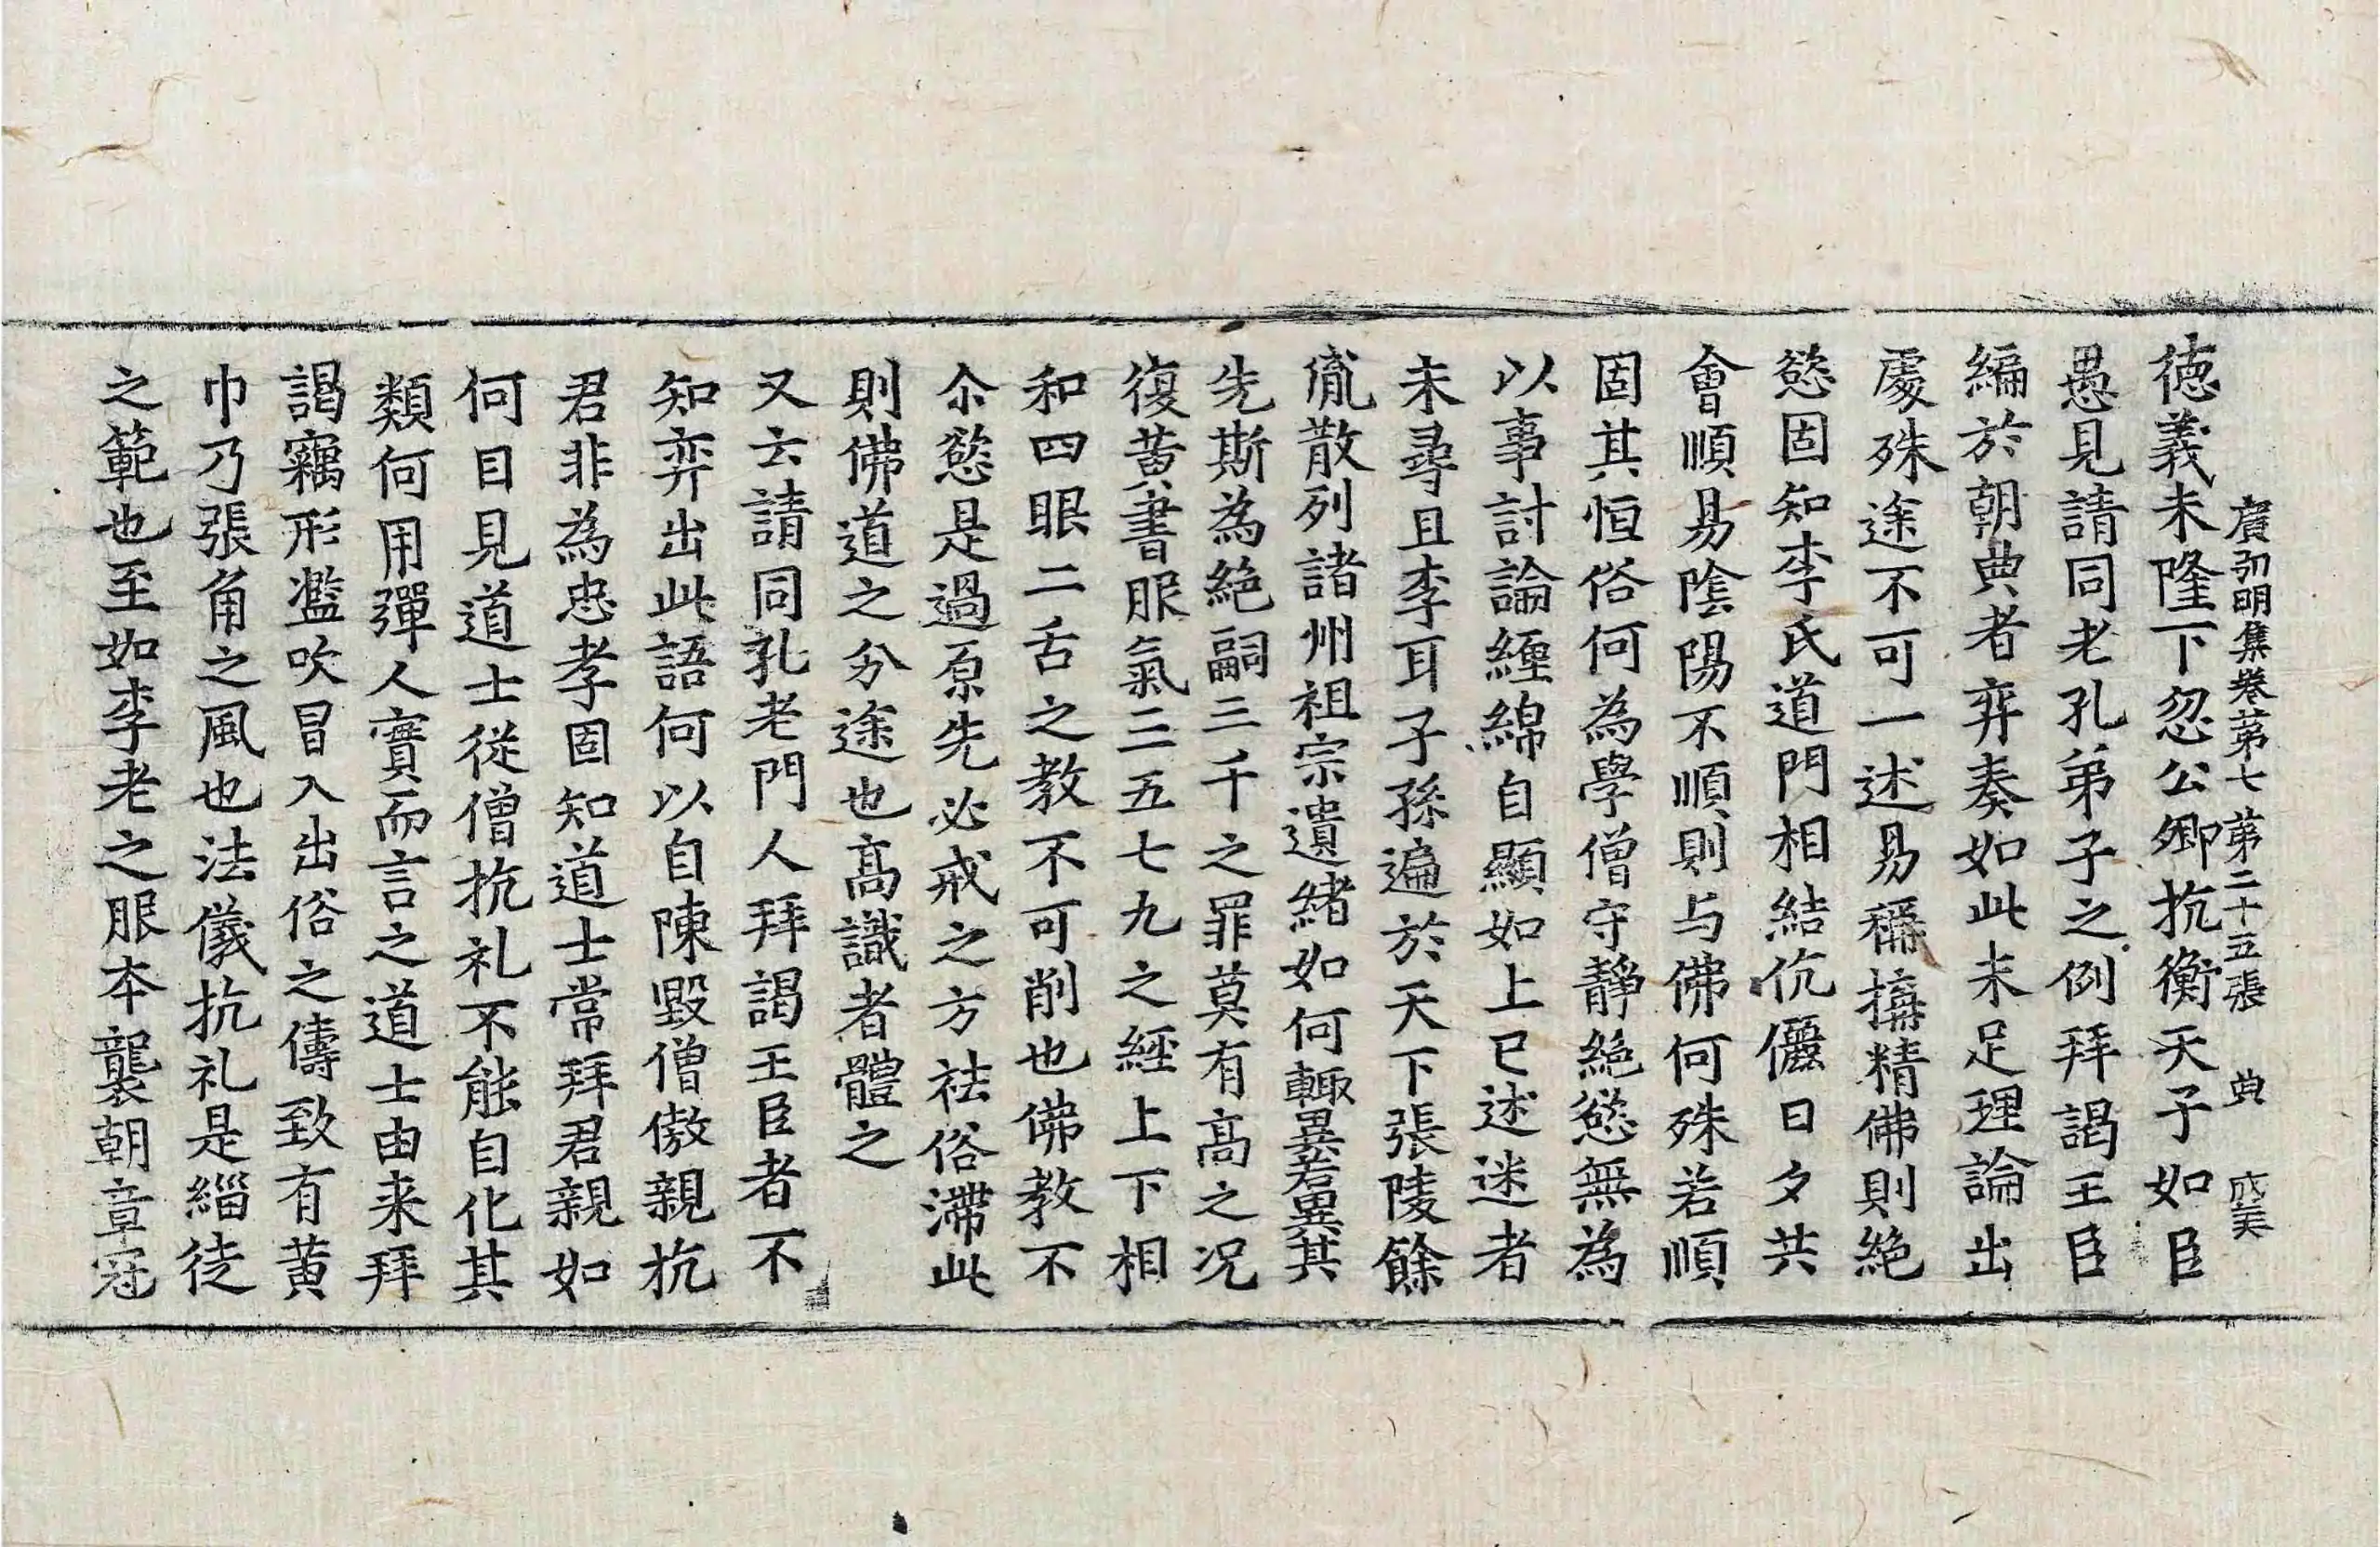 廣弘明集卷第七 第二十五張 典 成美
徳義未隆下忽公卿抗衡天子如臣
愚見請同老孔弟子之例拜謁王臣
編於朝典者弈奏如此未足理論出
處殊途不可一述易稱搆精佛則絶
慾固知李氏道門相結伉儷日夕共
會順易陰陽不順則与佛何殊若順
固其恒俗何為學僧守靜絶慾無為
以事討論纏綿自顯如上已述迷者
未尋且李耳子孫遍於天下張陵餘
胤散列諸州祖宗遺緒如何輙異若異其
先斯為絶嗣三千之罪莫有高之况
復黄書服氣三五七九之經上下相
和四眼二舌之教不可削也佛教不
尒慾是過原先必戒之方祛俗滯此
則佛道之分途也高識者體之
又云請同孔老門人拜謁王臣者不
知弈出此語何以自陳毀僧傲親抗
君非為忠孝固知道士常拜君親如
何目見道士從僧抗礼不能自化其
類何用彈人實而言之道士由来拜
謁竊形濫吹冒入出俗之儔致有黄
巾乃張角之風也法儀抗礼是緇徒
之範也至如李老之服本襲朝章冠